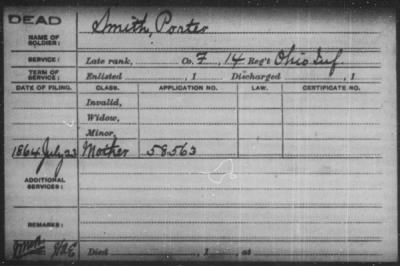 DEAD
NAME OF SOLDIER: Smith, Porter
SERVICE: Late rank, Co. F, 14 Reg't Ohio Inf.
TERM OF SERVICE: Enlisted , 1 Discharged , 1
DATE OF FILING. CLASS. APPLICATION NO. LAW. CERTIFICATE NO.
Invalid,
Widow,
Minor,
1864 July 23 Mother 58563
ADDITIONAL SERVICES:
REMARKS:
Died , 1 , at